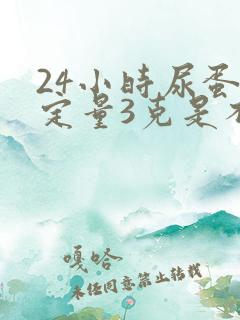 24小时尿蛋
定量3克是不
嘎哈
未经同意禁止转载